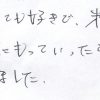 ても好きで、
にもっていった
ました.